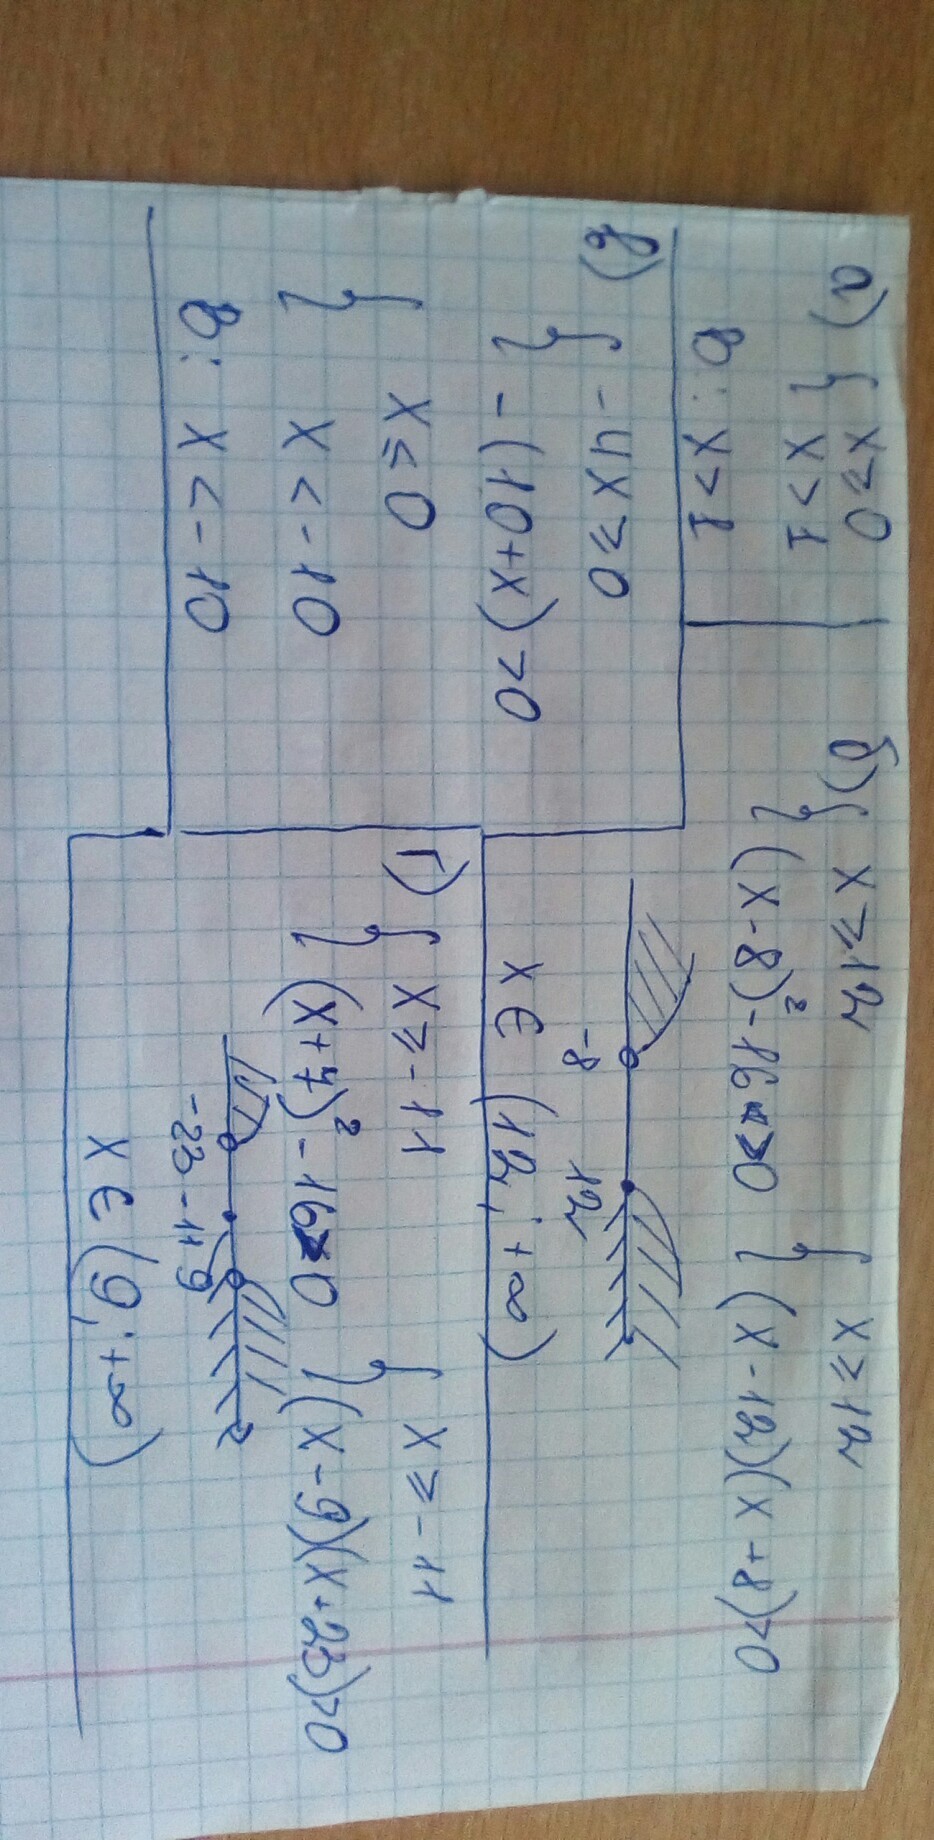 а) { x ≥ 0
x > 1
О: x > 1
б) { x ≥ 12 { x ≥ 12
(x-8)² - 16 > 0 (x-12)(x+8)>0
-8 12
x ∈ (12; +∞)
в) { -4x ≥ 0
-(10+x) > 0
{ x ≤ 0
x < -10
О: x < -10
г) { x ≥ -11 { x ≥ -11
(x+7)² - 16 > 0 (x-9)(x+23)>0
-23 -11 9
x ∈ (9; +∞)